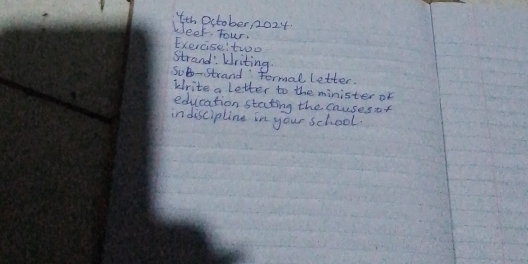 4th October, 2024
Week: Four.
Exercise: two
Strand: Writing.
Sub-Strand: Formal Letter.
Write a Letter to the minister of
education stating the causes of
indiscipline in your school.